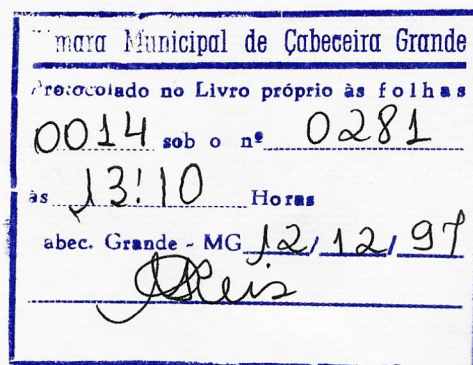 mara Municipal de Cabeceira Grande
Protocolado no Livro próprio às folhas
0014 sob o nº 0281
às 13:10 Horas
abec. Grande - MG 12/12/97